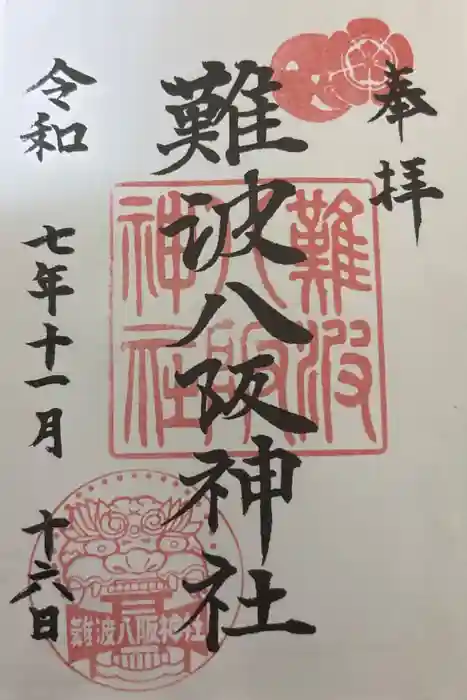 奉拝
難波八阪神社
難波
八阪
神社
令和
七年十一月
十六日
難波八阪神社